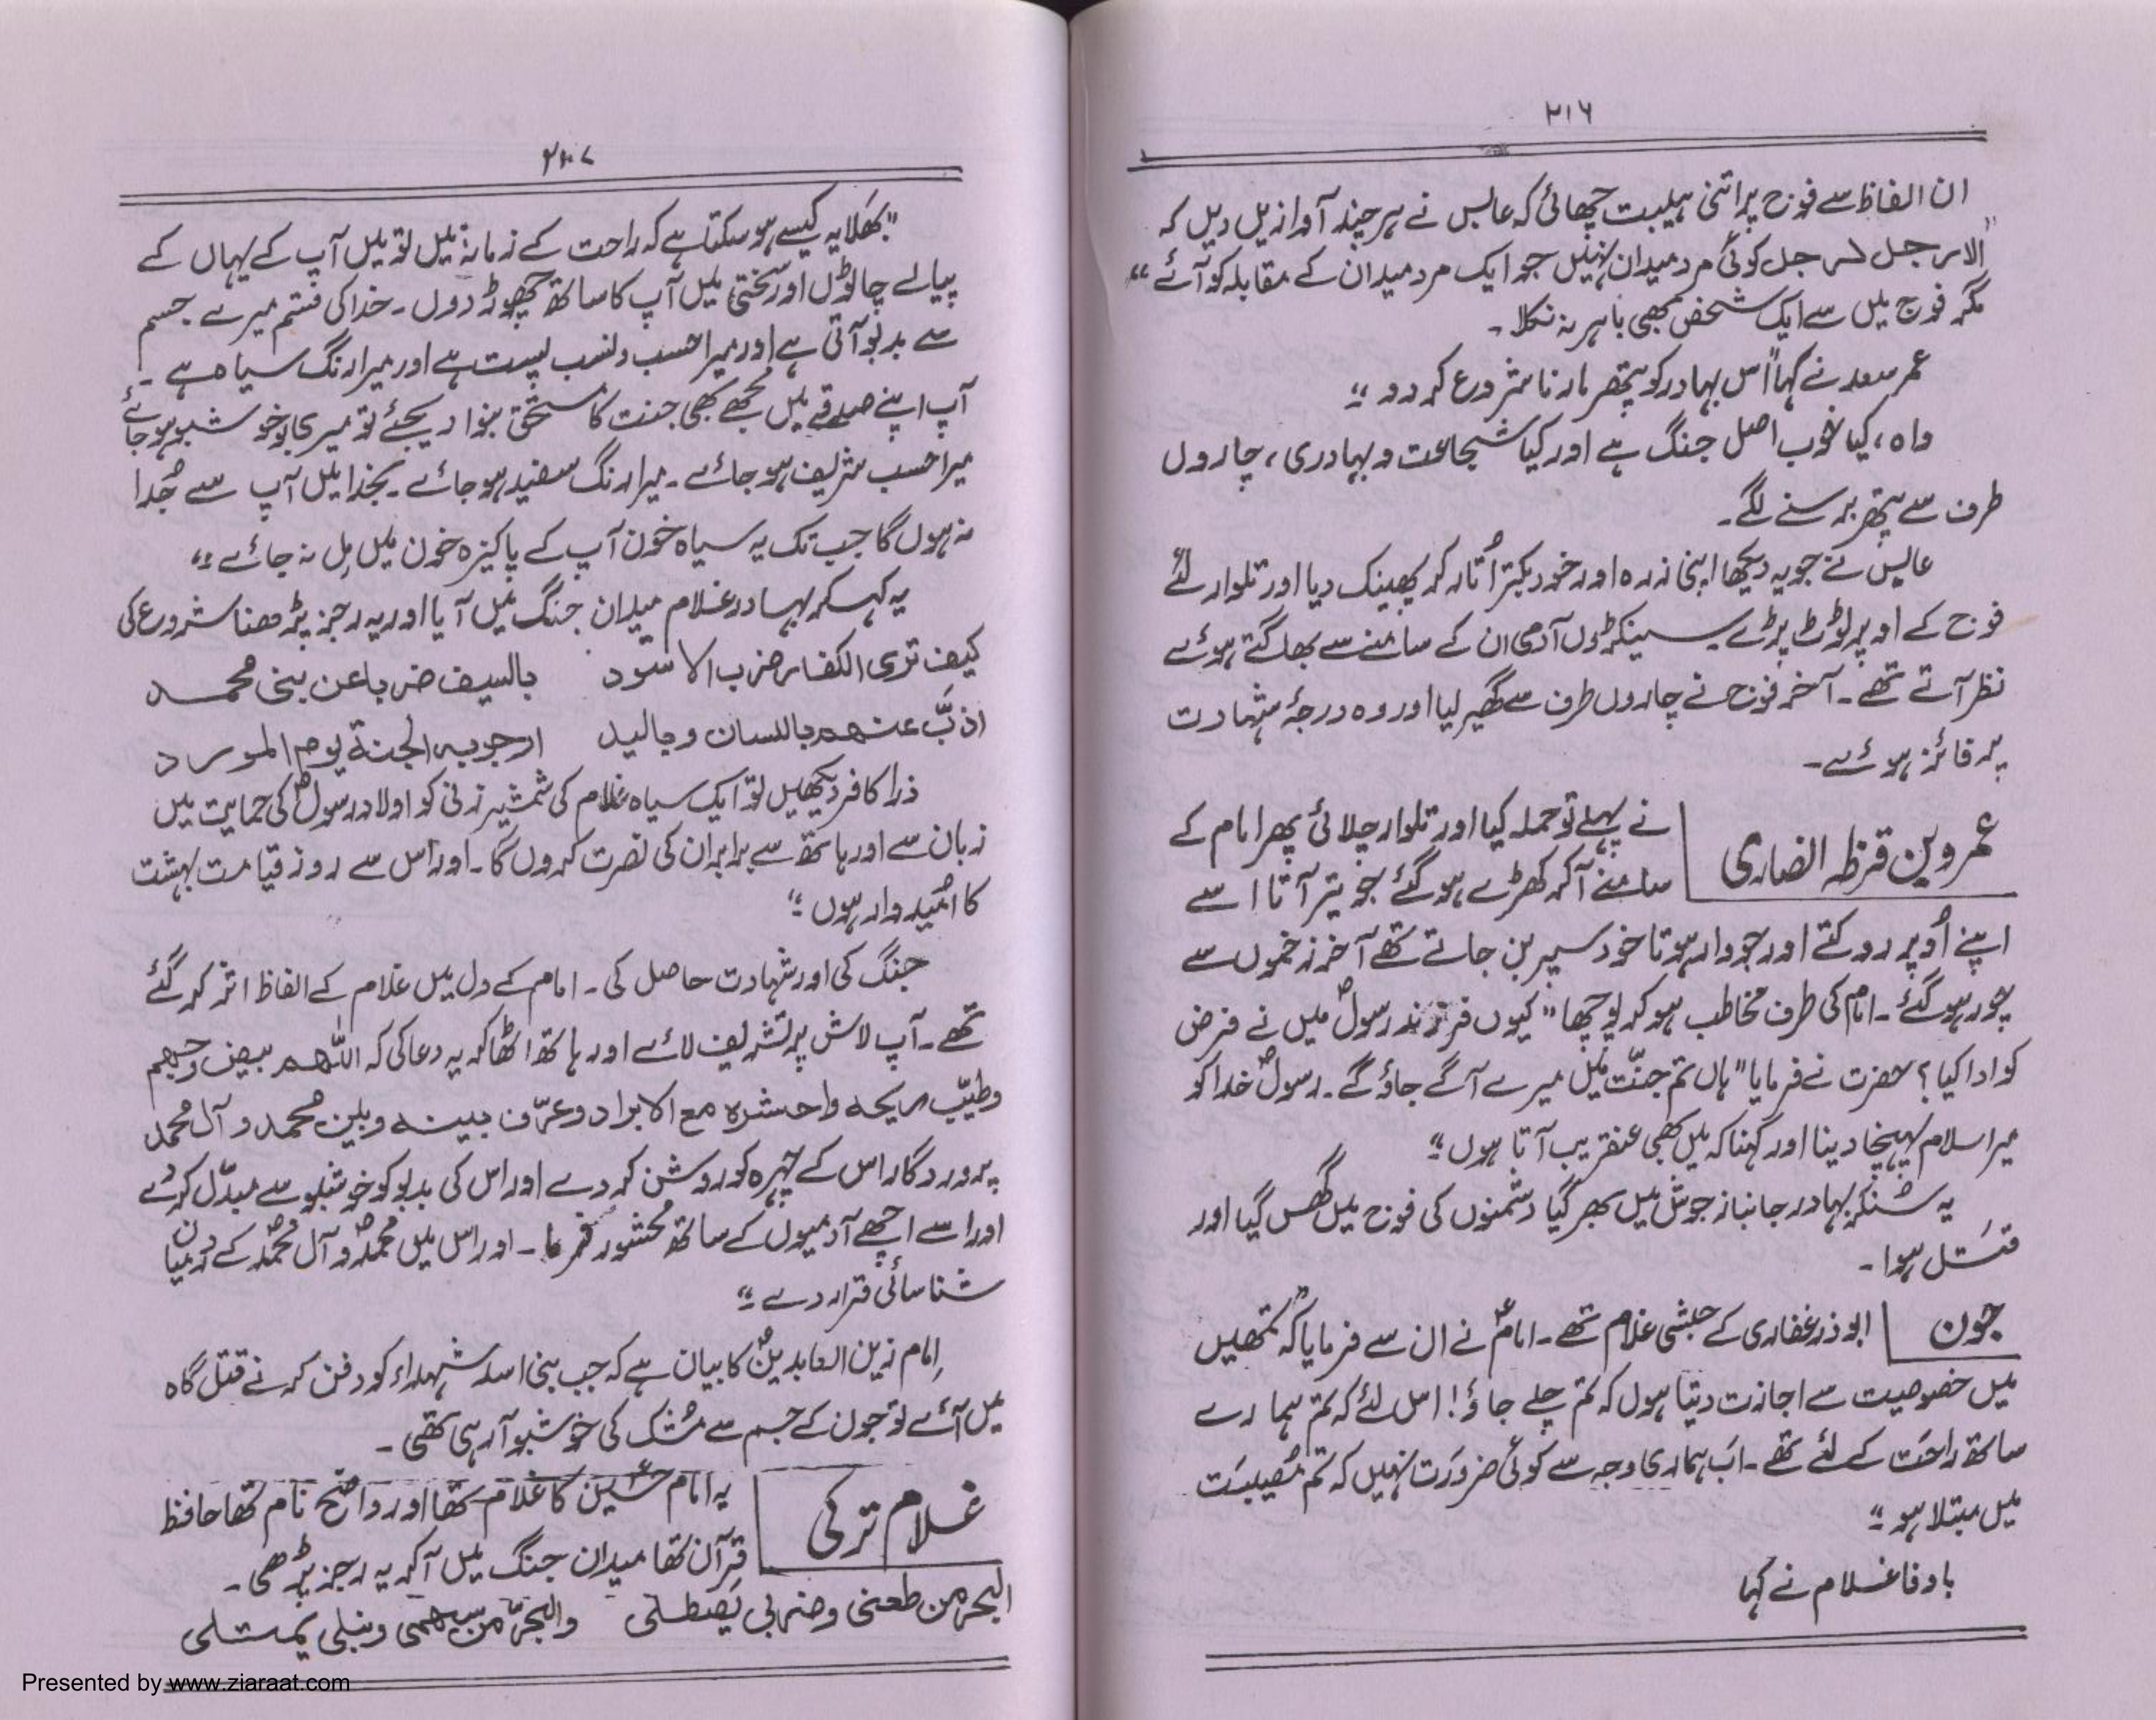 ۲۱۶
ان الفاظ سے فوج پر اتنی ہیبت چھائی کہ عابس نے ہر چند آوازیں دیں کہ
"الا رجل لرجل کوئی مرد میدان نہیں جو ایک مرد میدان کے مقابلہ کو آئے"
مگر فوج میں سے ایک شخص بھی باہر نہ نکلا۔
عمر سعد نے کہا "اس بہادر کو پتھر مارنا شروع کر دو"
واہ، کیا خوب اصل جنگ ہے اور کیا شجاعت و بہادری، چاروں
طرف سے پتھر برسنے لگے۔
عابس نے جو یہ دیکھا اپنی زرہ اور خود بکتر اُتار کر پھینک دیا اور تلوار لئے
فوج کے اوپر ٹوٹ پڑے سینکڑوں آدمی ان کے سامنے سے بھاگتے ہوئے
نظر آتے تھے۔ آخر فوج نے چاروں طرف سے گھیر لیا اور وہ درجۂ شہادت
پر فائز ہوئے۔
عمرو بن قرظہ انصاری
نے پہلے تو حملہ کیا اور تلوار چلائی پھر امام کے
سامنے آکر کھڑے ہو گئے جو تیر آتا اسے
اپنے اُوپر روکتے اور جو وار ہوتا خود سپر بن جاتے تھے آخر زخموں سے
چور ہو گئے۔ امام کی طرف مخاطب ہو کر پوچھا "کیوں فرزند رسولؐ میں نے فرض
کو ادا کیا؟ حضرت نے فرمایا "ہاں تم جنّت میں میرے آگے جاؤ گے۔ رسولؐ خدا کو
میرا سلام پہنچا دینا اور کہنا کہ میں بھی عنقریب آتا ہوں"
یہ سُنکر بہادر جانباز جوش میں بھر گیا دشمنوں کی فوج میں گھس گیا اور
قتل ہوا۔
جون
ابوذر غفاری کے حبشی غلام تھے۔ امامؑ نے ان سے فرمایا کہ "تمھیں
میں خصوصیت سے اجازت دیتا ہوں کہ تم چلے جاؤ! اس لئے کہ تم ہمارے
ساتھ راحَت کے لئے تھے۔ اَب ہماری وجہ سے کوئی ضرورَت نہیں کہ تم مُصیبَت
میں مبتلا ہو"
باوفا غلام نے کہا
۲۰۷
"بھَلا یہ کیسے ہو سکتا ہے کہ راحت کے زمانہ میں تو میں آپ کے یہاں کے
پیالے چاٹوں اور سختی میں آپ کا ساتھ چھوڑ دوں۔ خدا کی قسم میرے جسم
سے بدبو آتی ہے اور میرا حسب و نسب پست ہے اور میرا رنگ سیاہ ہے۔
آپ اپنے صدقے میں مجھے بھی جنت کا مستحق بنوا دیجئے تو میری بو خوشبو ہو جائے
میرا حسب شریف ہو جائے۔ میرا رنگ سفید ہو جائے۔ بخدا میں آپ سے جُدا
نہ ہوں گا جب تک یہ سیاہ خون آپ کے پاکیزہ خون میں مِل نہ جائے"
یہ کہہ کر بہادر غلام میدان جنگ میں آیا اور یہ رجز پڑھنا شروع کی
کیف تری الکفار ضرب الاسود بالسیف ضربا عن بنی محمد
اذبّ عنھم باللسان و بالید ارجو بہ الجنة یوم المورد
ذرا کافر دیکھیں تو ایک سیاہ غلام کی شمشیر زنی کو اولاد رسولؐ کی حمایت میں
زبان سے اور ہاتھ سے برابر ان کی نصرت کروں گا۔ اور اس سے روز قیامت بہشت
کا اُمیدوار ہوں"
جنگ کی اور شہادت حاصل کی۔ امام کے دل میں غلام کے الفاظ اثر کر گئے
تھے۔ آپ لاش پر تشریف لائے اور ہاتھ اٹھا کر یہ دعا کی کہ اللّٰھم بیض وجھم
وطیّب ریحہ واحشرہ مع الابراد وعرّف بینہ وبین محمد و آل محمد
پروردگار اس کے چہرہ کو روشن کر دے اور اس کی بدبو کو خوشبو سے مبدّل کر دے
اور اسے اچھے آدمیوں کے ساتھ محشور فرما۔ اور اس میں محمدؐ و آل محمدؐ کے درمیان
شناسائی قرار دے"
اِمام زین العابدینؑ کا بیان ہے کہ جب بنی اسد شہداء کو دفن کرنے قتل گاہ
میں آئے تو جون کے جسم سے مُشک کی خوشبو آرہی تھی۔
غلام ترکی
یہ امام حسینؑ کا غلام تھا اور واضح نام تھا حافظ
قرآن تھا میدان جنگ میں آکر یہ رجز پڑھی۔
البحر من طعنی وضربی یَصطلی والجوّ من سھمی ونبلی یمتلی
Presented by www.ziaraat.com